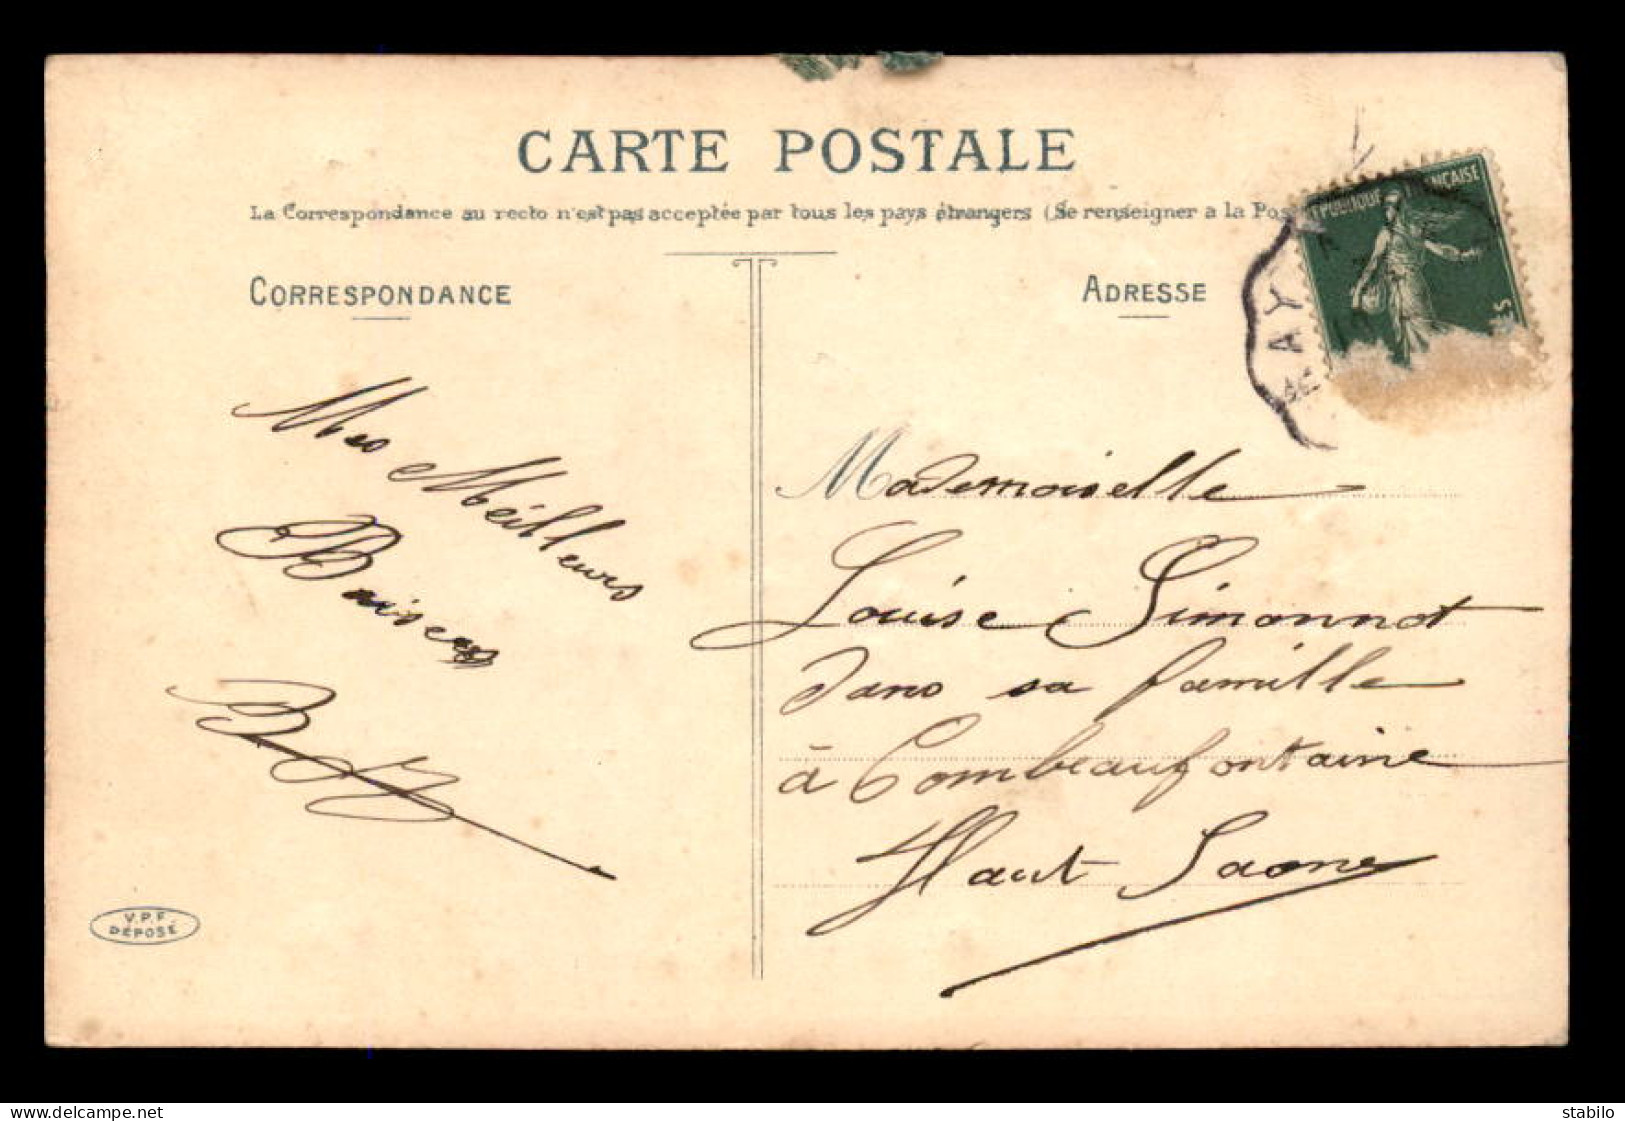 CARTE POSTALE
La Correspondance au recto n'est pas acceptée par tous les pays étrangers (Se renseigner a la Pos
CORRESPONDANCE
ADRESSE
RÉPUBLIQUE FRANÇAISE
Mes Meilleurs
Baisers
Mademoiselle
Louise Simonnot
dans sa famille
à Combeaufontaine
Haut Saone
V.P.F
DÉPOSÉ
delcampe.net
stabilo